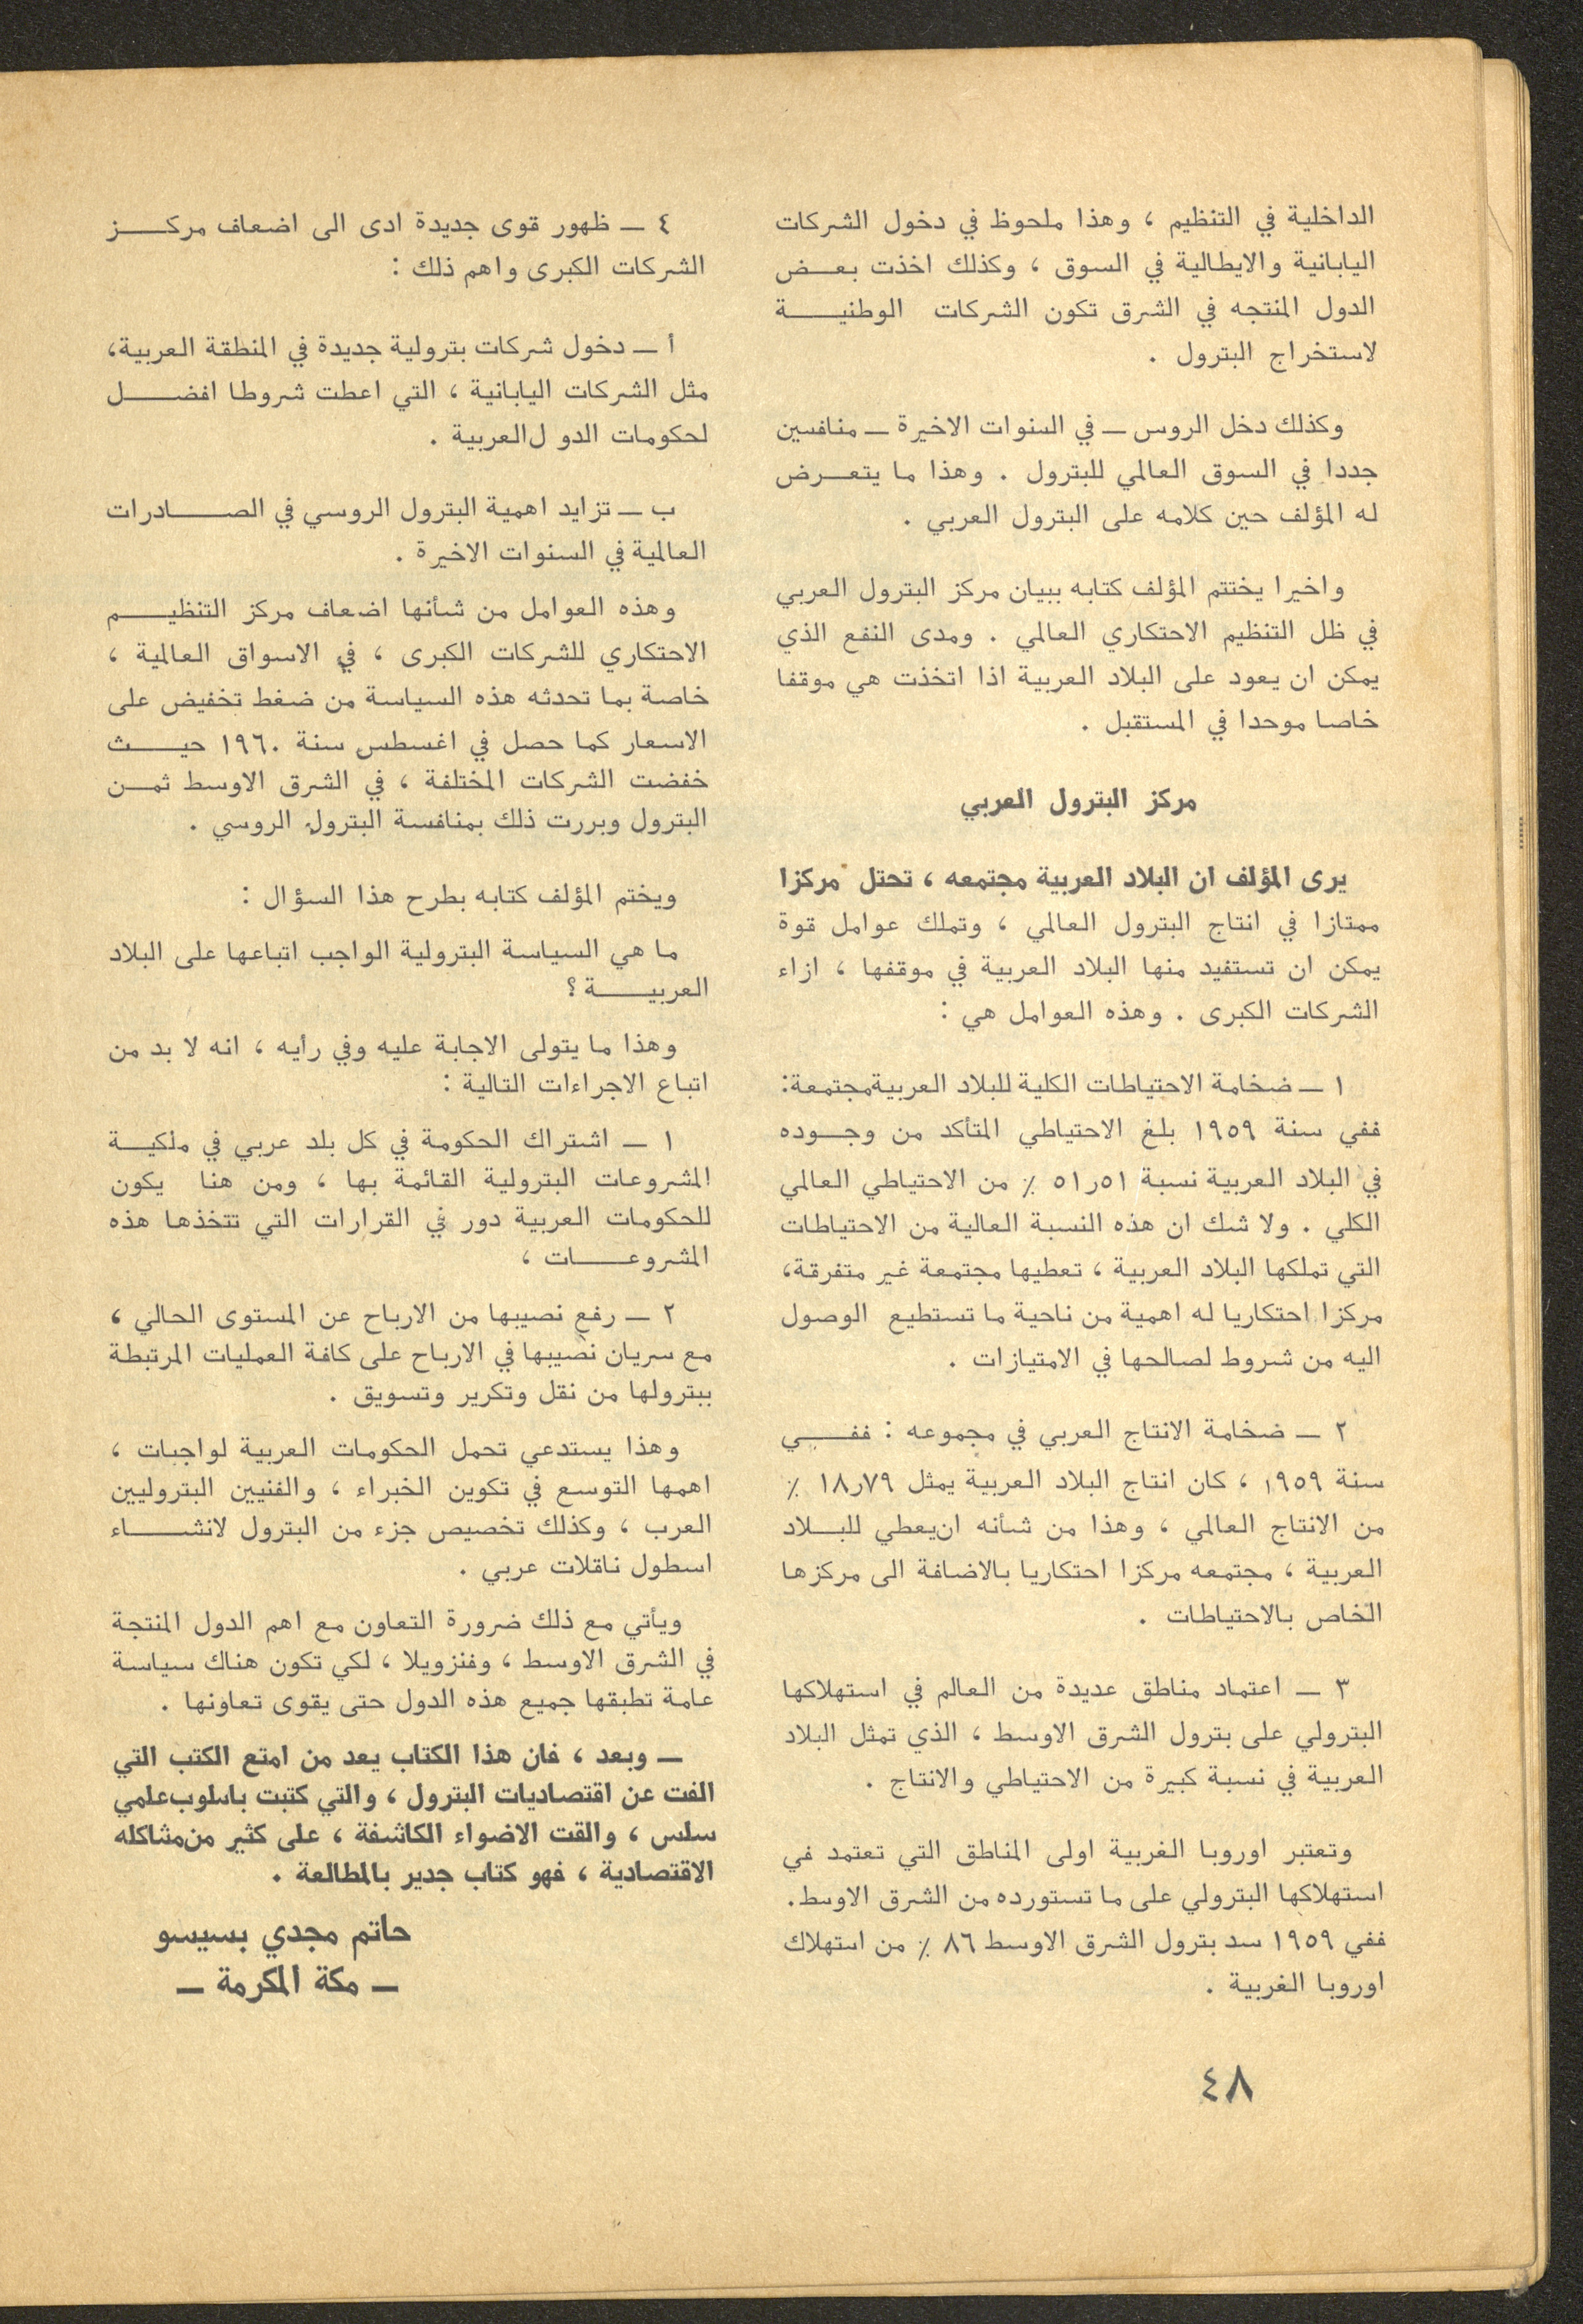 الداخلية في التنظيم ، وهذا ملحوظ في دخول الشركات
اليابانية والايطالية في السوق ، وكذلك اخذت بعض
الدول المنتجه في الشرق تكون الشركات الوطنية
لاستخراج البترول .
وكذلك دخل الروس ــ في السنوات الاخيرة ــ منافسين
جددا في السوق العالمي للبترول . وهذا ما يتعرض
له المؤلف حين كلامه على البترول العربي .
واخيرا يختتم المؤلف كتابه ببيان مركز البترول العربي
في ظل التنظيم الاحتكاري العالمي . ومدى النفع الذي
يمكن ان يعود على البلاد العربية اذا اتخذت هي موقفا
خاصا موحدا في المستقبل .
مركز البترول العربي
يرى المؤلف ان البلاد العربية مجتمعه ، تحتل مركزا
ممتازا في انتاج البترول العالمي ، وتملك عوامل قوة
يمكن ان تستفيد منها البلاد العربية في موقفها ، ازاء
الشركات الكبرى . وهذه العوامل هي :
١ ــ ضخامة الاحتياطات الكلية للبلاد العربيةمجتمعة:
ففي سنة ١٩٥٩ بلغ الاحتياطي المتأكد من وجوده
في البلاد العربية نسبة ٥١ر٥١ ٪ من الاحتياطي العالمي
الكلي . ولا شك ان هذه النسبة العالية من الاحتياطات
التي تملكها البلاد العربية ، تعطيها مجتمعة غير متفرقة،
مركزا احتكاريا له اهمية من ناحية ما تستطيع الوصول
اليه من شروط لصالحها في الامتيازات .
٢ ــ ضخامة الانتاج العربي في مجموعه : ففي
سنة ١٩٥٩ ، كان انتاج البلاد العربية يمثل ٧٩ر١٨ ٪
من الانتاج العالمي ، وهذا من شأنه ان‌يعطي للبلاد
العربية ، مجتمعه مركزا احتكاريا بالاضافة الى مركزها
الخاص بالاحتياطات .
٣ ــ اعتماد مناطق عديدة من العالم في استهلاكها
البترولي على بترول الشرق الاوسط ، الذي تمثل البلاد
العربية في نسبة كبيرة من الاحتياطي والانتاج .
وتعتبر اوروبا الغربية اولى المناطق التي تعتمد في
استهلاكها البترولي على ما تستورده من الشرق الاوسط.
ففي ١٩٥٩ سد بترول الشرق الاوسط ٨٦ ٪ من استهلاك
اوروبا الغربية .
٤ ــ ظهور قوى جديدة ادى الى اضعاف مركز
الشركات الكبرى واهم ذلك :
أ ــ دخول شركات بترولية جديدة في المنطقة العربية،
مثل الشركات اليابانية ، التي اعطت شروطا افضل
لحكومات الدو ل‌العربية .
ب ــ تزايد اهمية البترول الروسي في الصادرات
العالمية في السنوات الاخيرة .
وهذه العوامل من شأنها اضعاف مركز التنظيم
الاحتكاري للشركات الكبرى ، في الاسواق العالمية ،
خاصة بما تحدثه هذه السياسة من ضغط تخفيض على
الاسعار كما حصل في اغسطس سنة ١٩٦٠ حيث
خفضت الشركات المختلفة ، في الشرق الاوسط ثمن
البترول وبررت ذلك بمنافسة البترول الروسي .
ويختم المؤلف كتابه بطرح هذا السؤال :
ما هي السياسة البترولية الواجب اتباعها على البلاد
العربية ؟
وهذا ما يتولى الاجابة عليه وفي رأيه ، انه لا بد من
اتباع الاجراءات التالية :
١ ــ اشتراك الحكومة في كل بلد عربي في ملكية
المشروعات البترولية القائمة بها ، ومن هنا يكون
للحكومات العربية دور في القرارات التي تتخذها هذه
المشروعات ،
٢ ــ رفع نصيبها من الارباح عن المستوى الحالي ،
مع سريان نصيبها في الارباح على كافة العمليات المرتبطة
ببترولها من نقل وتكرير وتسويق .
وهذا يستدعي تحمل الحكومات العربية لواجبات ،
اهمها التوسع في تكوين الخبراء ، والفنيين البتروليين
العرب ، وكذلك تخصيص جزء من البترول لانشاء
اسطول ناقلات عربي .
ويأتي مع ذلك ضرورة التعاون مع اهم الدول المنتجة
في الشرق الاوسط ، وفنزويلا ، لكي تكون هناك سياسة
عامة تطبقها جميع هذه الدول حتى يقوى تعاونها .
ــ وبعد ، فان هذا الكتاب يعد من امتع الكتب التي
الفت عن اقتصاديات البترول ، والتي كتبت باسلوب‌علمي
سلس ، والقت الاضواء الكاشفة ، على كثير من‌مشاكله
الاقتصادية ، فهو كتاب جدير بالمطالعة .
حاتم مجدي بسيسو
ــ مكة المكرمة ــ
٤٨